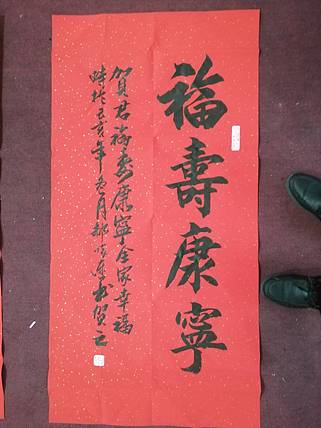 福壽康寧
賀君福壽康寧全家幸福
時於己亥年
月
書賀之